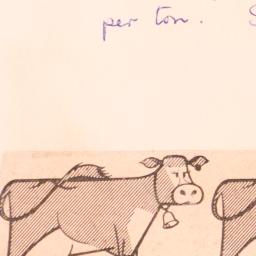 per ton. S